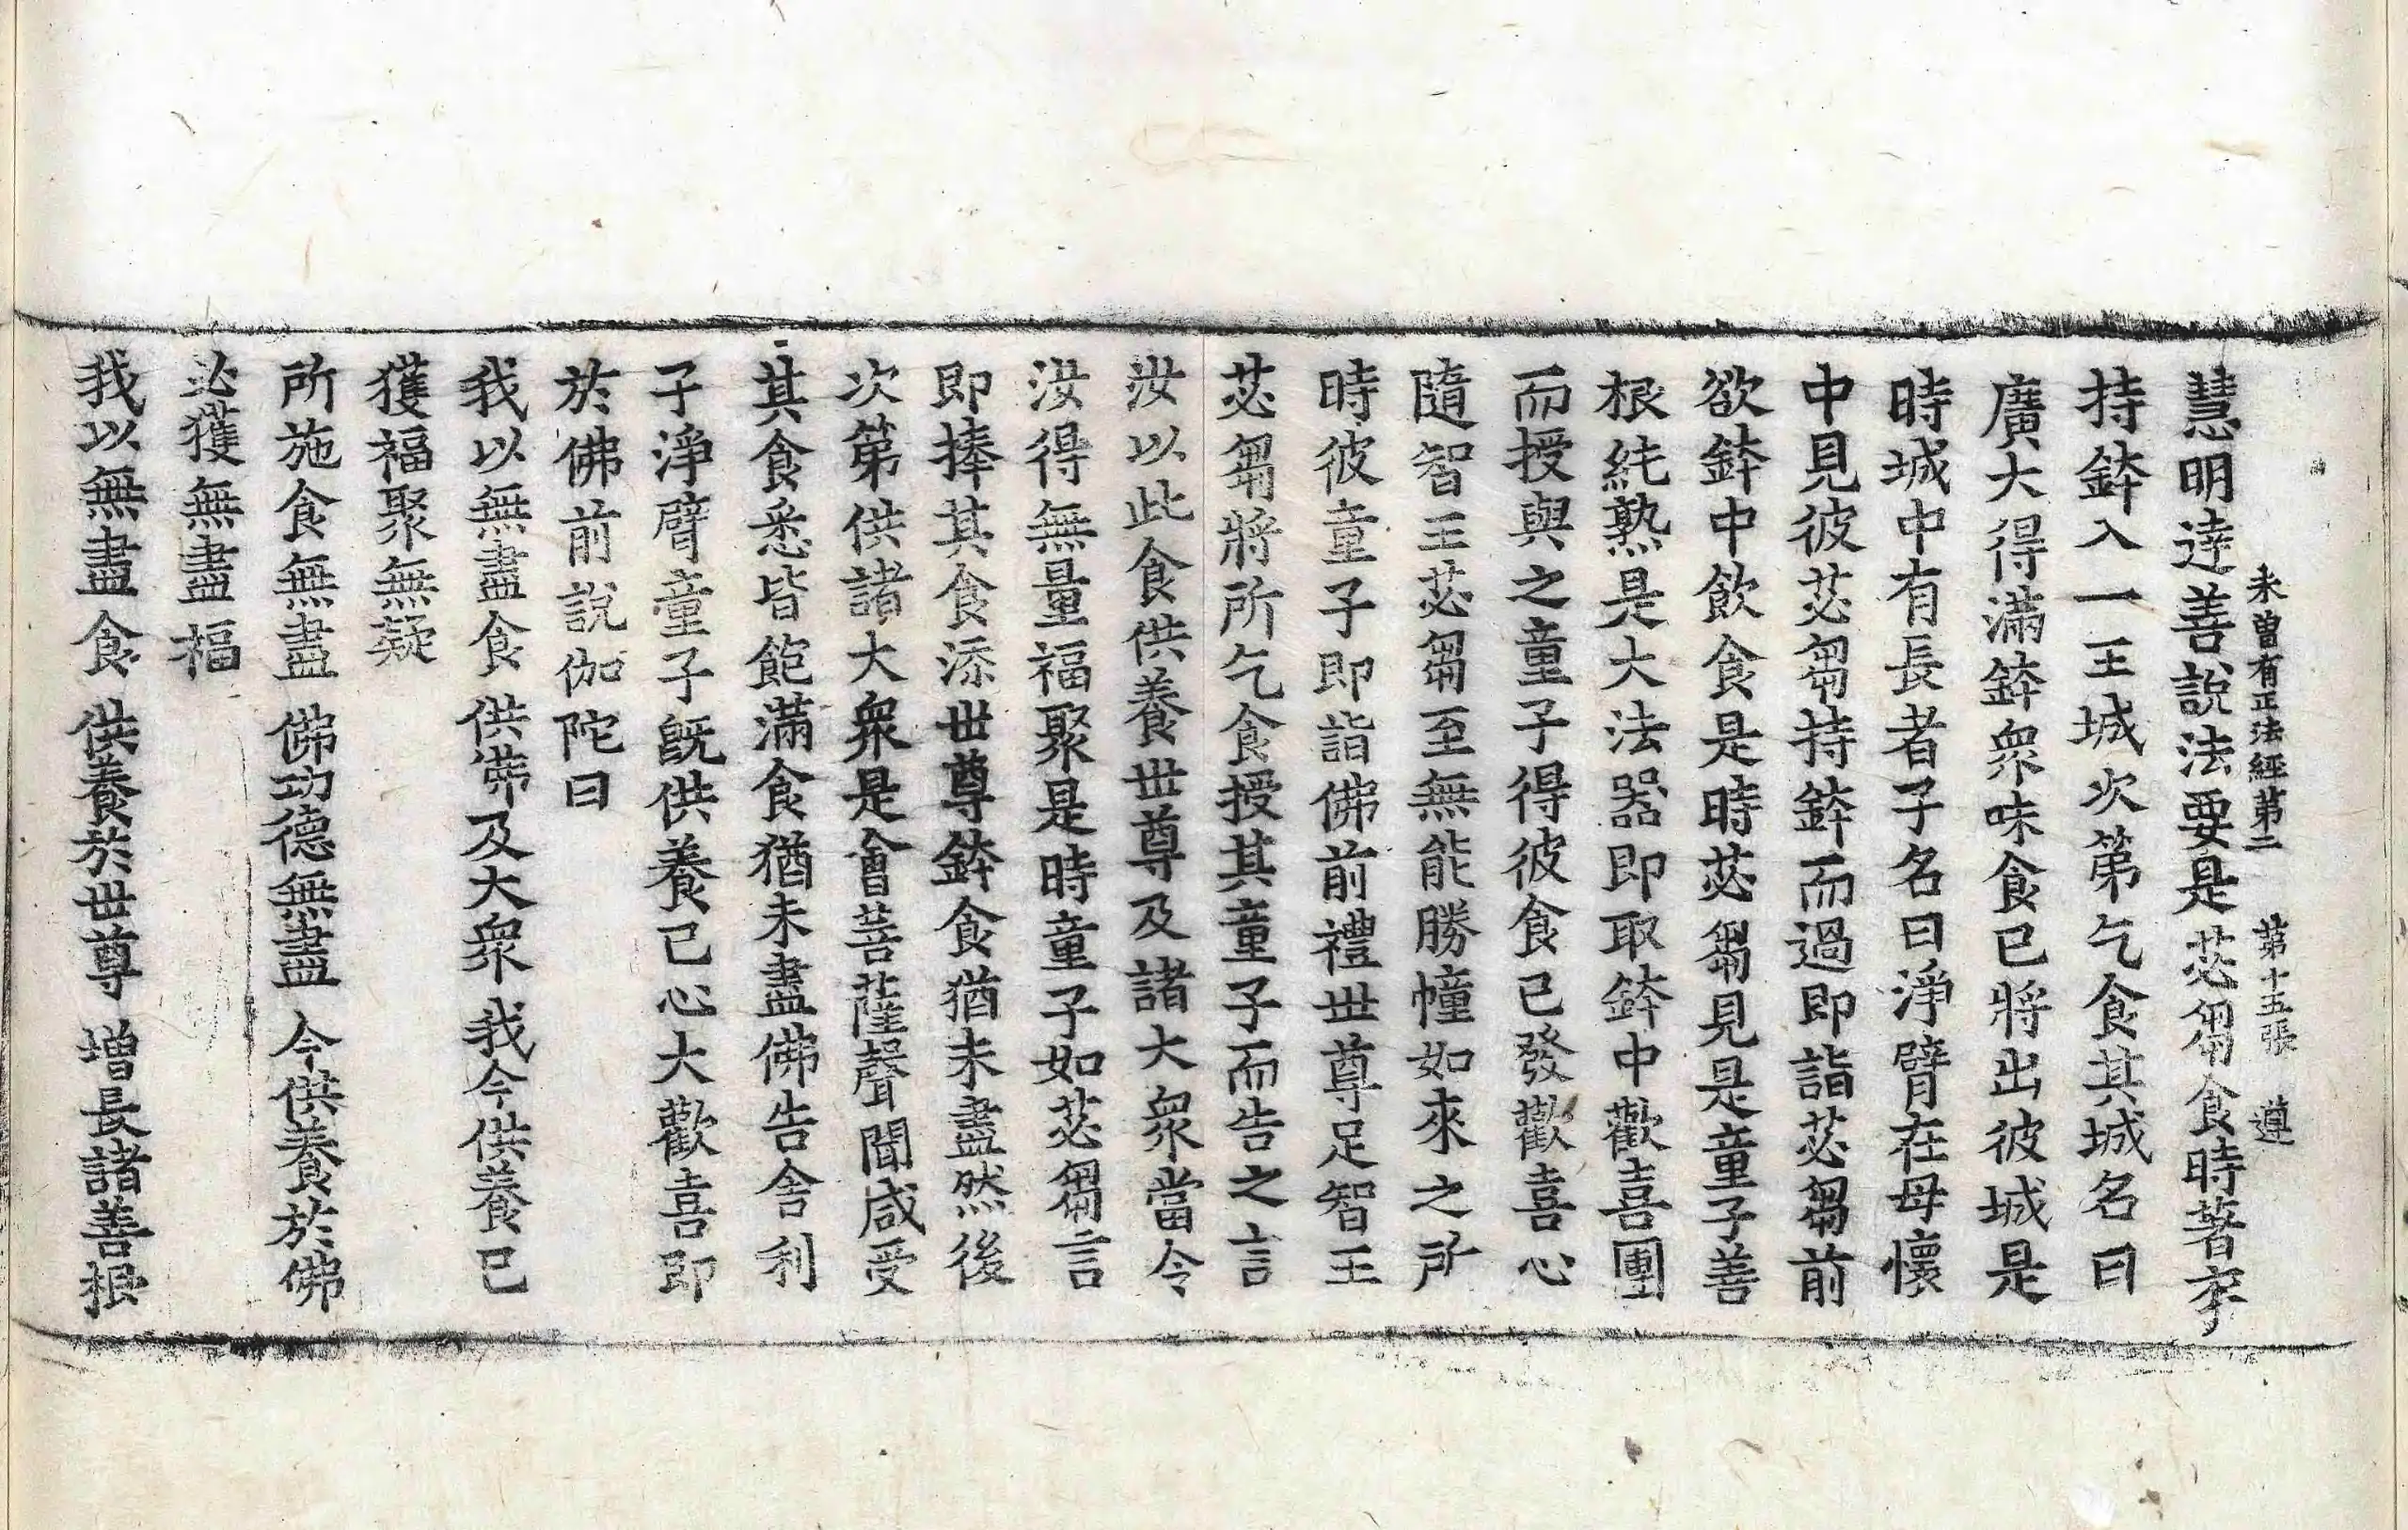 未曾有正法經第二 第十五張 遵
慧明達善說法要是苾芻食時著衣
持鉢入一王城次第乞食其城名曰
廣大得滿鉢衆味食已將出彼城是
時城中有長者子名曰淨臂在母懷
中見彼苾芻持鉢而過即詣苾芻前
欲鉢中飲食是時苾芻見是童子善
根純熟是大法器即取鉢中歡喜團
而授與之童子得彼食已發歡喜心
隨智王苾芻至無能勝幢如來之所
時彼童子即詣佛前禮世尊足智王
苾芻將所乞食授其童子而告之言
汝以此食供養世尊及諸大衆當令
汝得無量福聚是時童子如苾芻言
即捧其食添世尊鉢食猶未盡然後
次第供諸大衆是會菩薩聲聞咸受
其食悉皆飽滿食猶未盡佛告舍利
子淨臂童子旣供養已心大歡喜即
於佛前說伽陀曰
我以無盡食 供佛及大衆 我今供養已
獲福聚無疑
所施食無盡 佛功德無盡 今供養於佛
必獲無盡福
我以無盡食 供養於世尊 增長諸善根